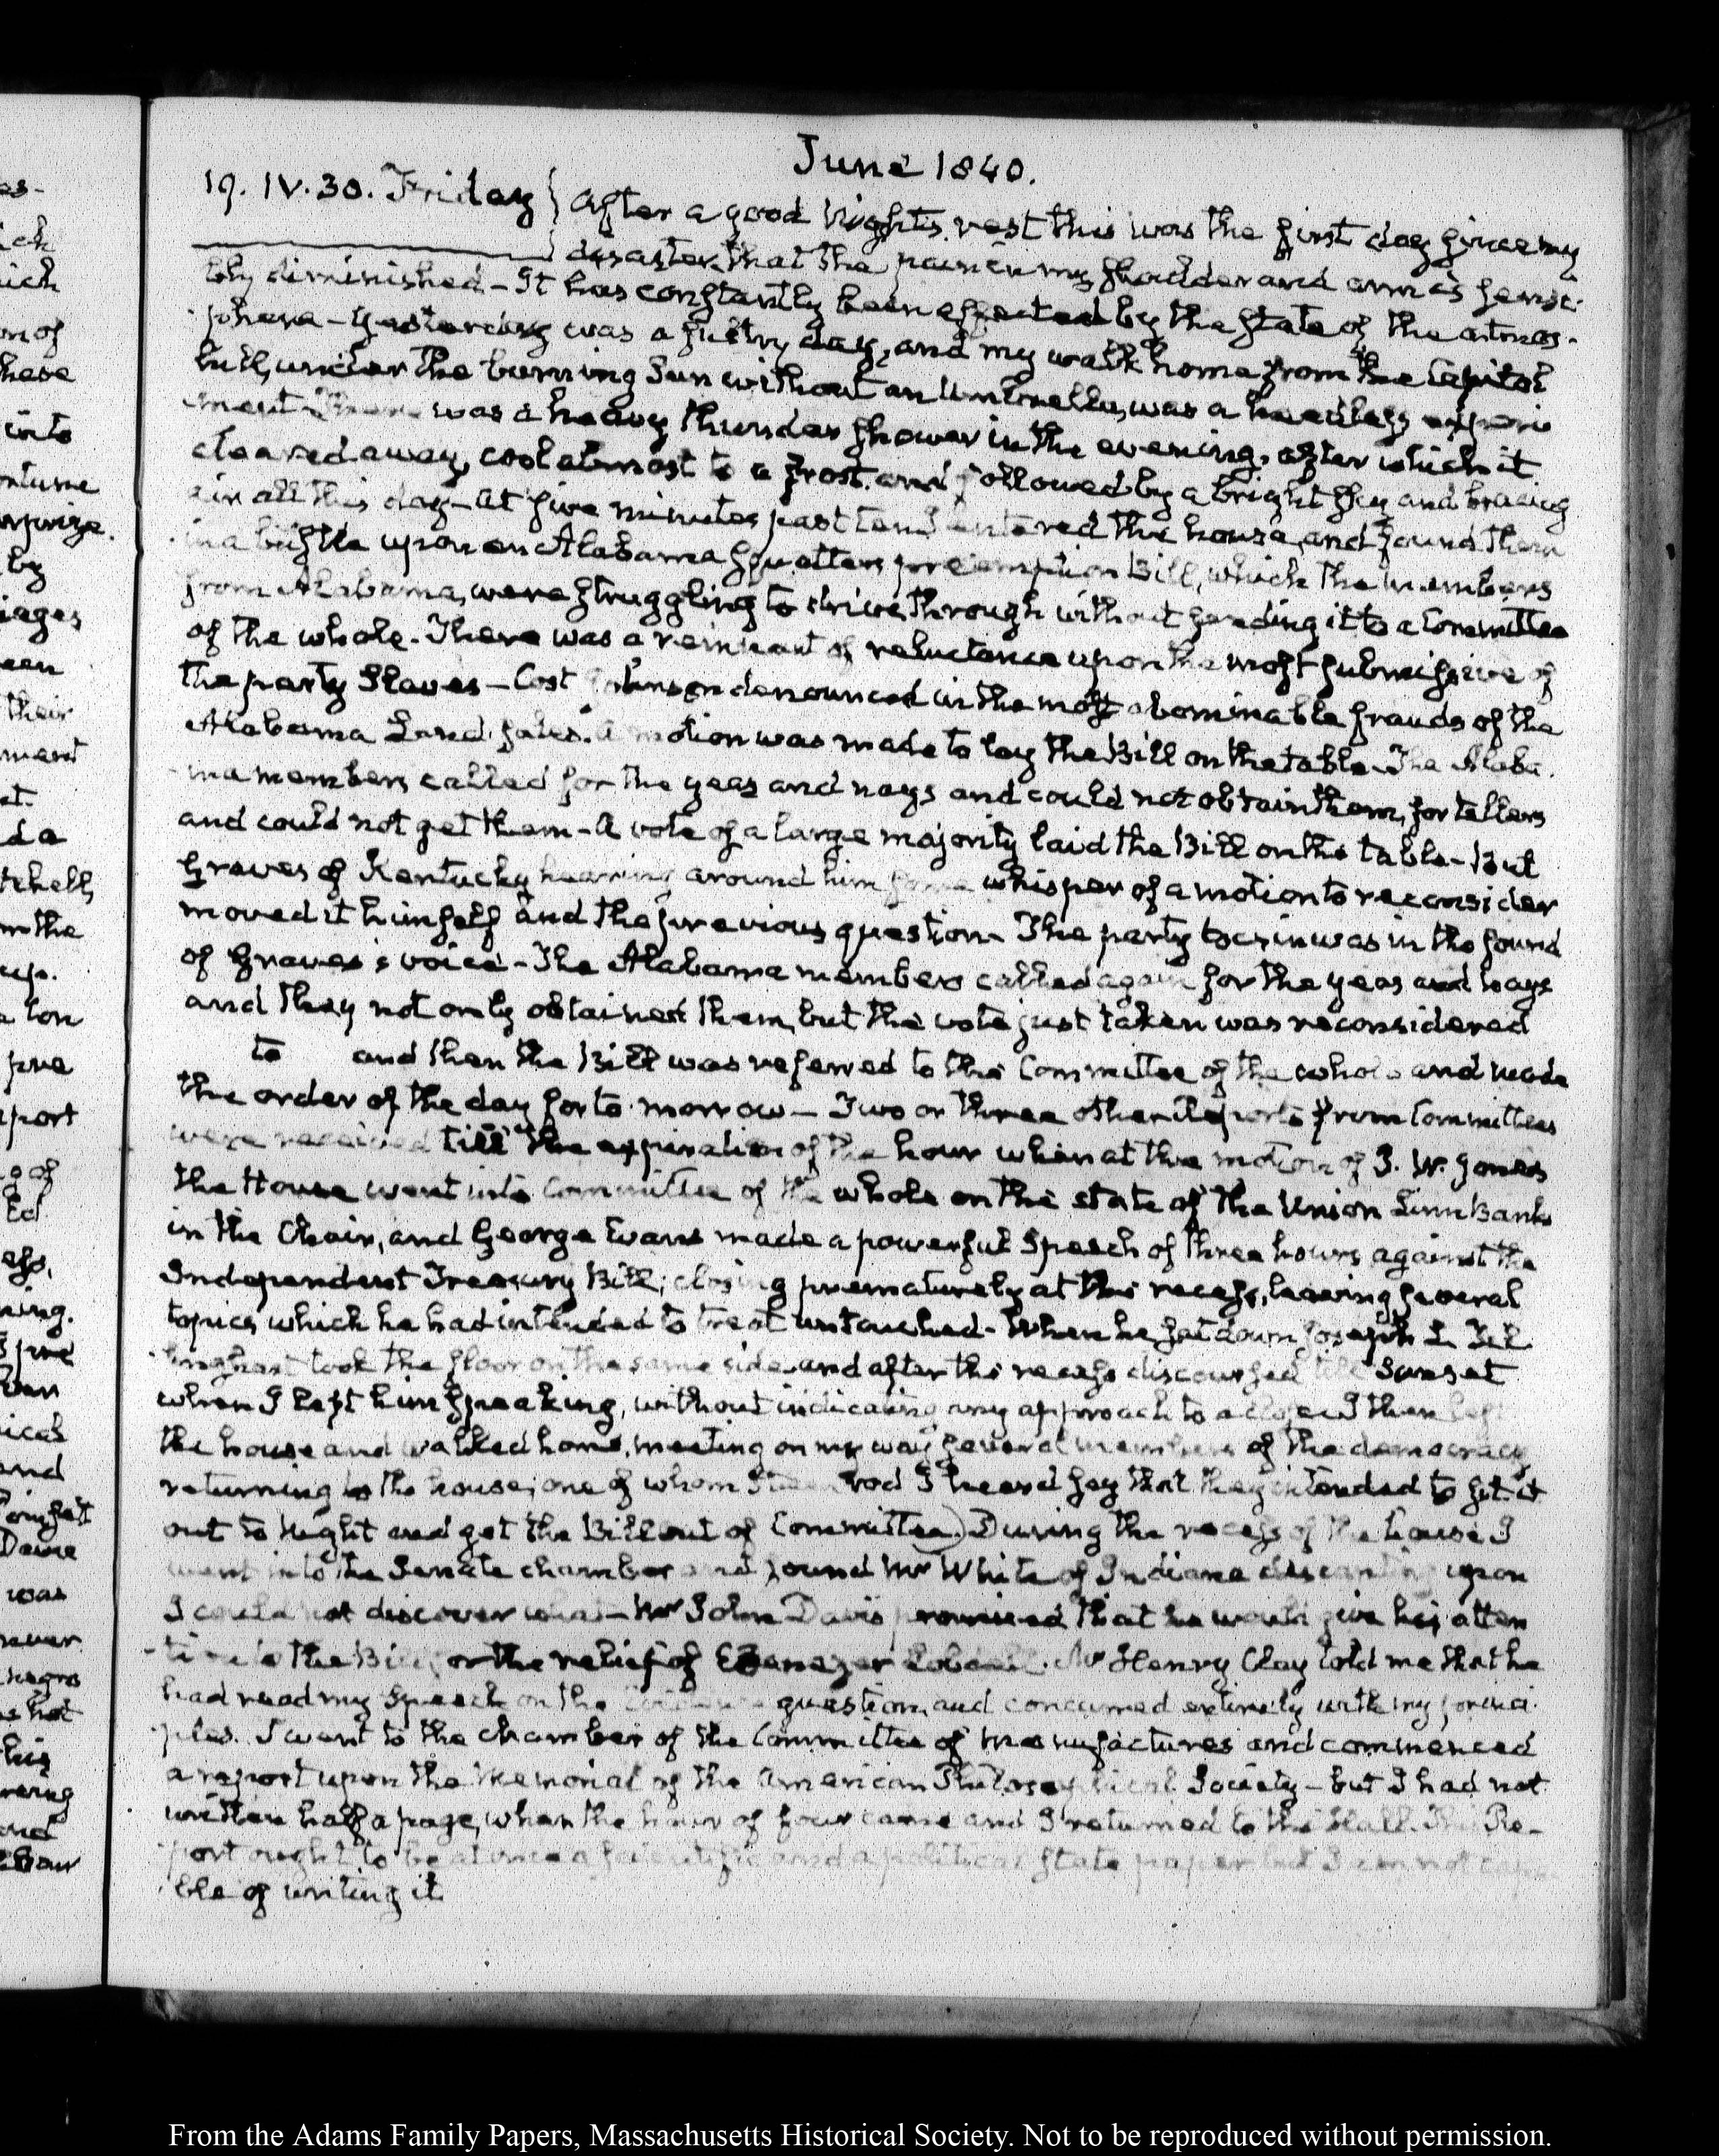 June 1840.
19. IV. 30. Friday } After a good Night's rest this was the first day since my
disaster that the pain in my shoulder and arm is sensi-
bly diminished - It has constantly been affected by the state of the atmos-
phere - Yesterday was a sultry day, and my walk home from the Capitol
hill, under the burning Sun without an Umbrella, was a heedless experi
ment - There was a heavy thunder shower in the evening, after which it
cleared away, cool almost to a frost. and followed by a bright sky and bracing
air all this day - At five minutes past ten I entered the house, and found them
in a bustle upon an Alabama squatters pre-emption Bill, which the members
from Alabama, were struggling to drive through without sending it to a Committee
of the whole. There was a remnant of reluctance upon the most submissive of
the party Slaves - Cost Johnson denounced in the most abominable frauds of the
Alabama Land sales. A motion was made to lay the Bill on the table - The Alaba-
ma members called for the yeas and nays and could not obtain them, for tellers
and could not get them - A vote of a large majority laid the Bill on the table - But
Graves of Kentucky hearing around him some whisper of a motion to reconsider
moved it himself and the previous question - The party tocsin was in the sound
of Graves's voice - The Alabama members called again for the yeas and nays
and they not only obtained them, but the vote just taken was reconsidered
to and then the Bill was referred to the Committee of the whole and made
the order of the day for to-morrow - Two or three other Reports from Committees
were received till the expiration of the hour when at the motion of J. W. Jones
the House went into Committee of the whole on the state of the Union Linn Banks
in the Chair, and George Evans made a powerful Speech of three hours against the
Independent Treasury Bill; closing prematurely at the recess, leaving several
topics which he had intended to treat untouched - When he sat down Joseph L. Til
linghast took the floor on the same side and after the recess discoursed till Sunset
when I left him speaking, without indicating any approach to a close I then left
the house and walked home, meeting on my way several members of the democracy
returning to the house; one of whom Steenrod I heard say that they intended to sit it
out to Night and get the Bill out of Committee) During the recess of the house I
went into the Senate chamber and found Mr White of Indiana descanting upon
I could not discover what - Mr John Davis promised that he would give his atten
tion to the Bill for the relief of Ebenezer Lobdell. Mr Henry Clay told me that he
had read my Speech on the question, and concurred entirely with my princi-
ples. I went to the chamber of the Committee of Manufactures and commenced
a report upon the Memorial of the American Philosophical Society - but I had not
written half a page, when the hour of four came and I returned to the Hall. This Re-
port ought to be at once a scientific and a political State paper but I am not capa
ble of writing it